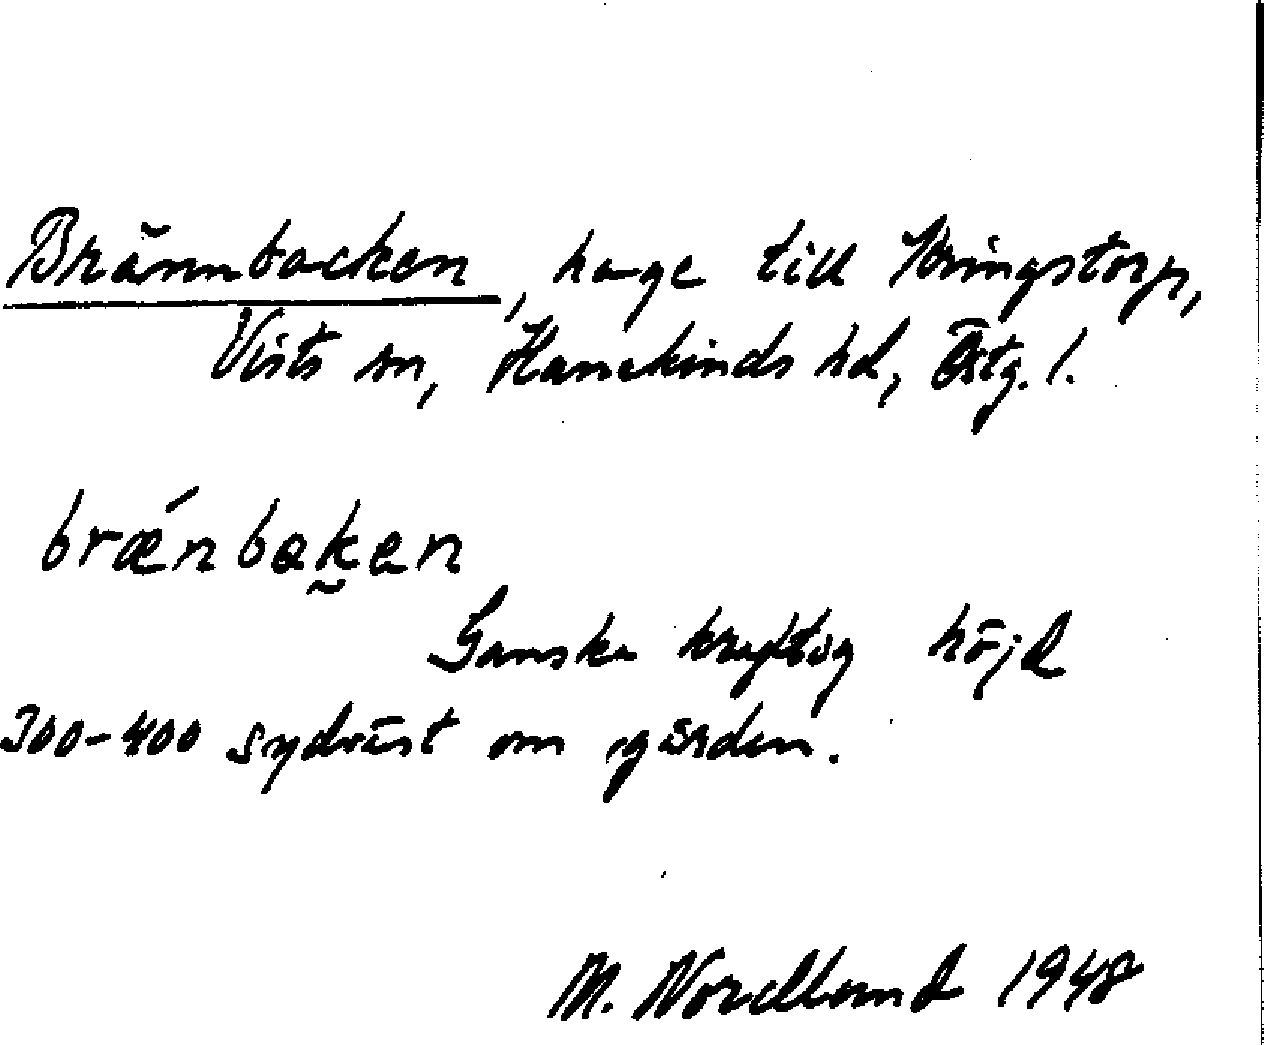 Brännbacken, hage till Kringstorp,
Vists sn, Hanekinds hd, Östg. l.
brǽnbaken
Ganska kraftig höjd
300-400 sydväst om gården.
M. Nordlund 1948